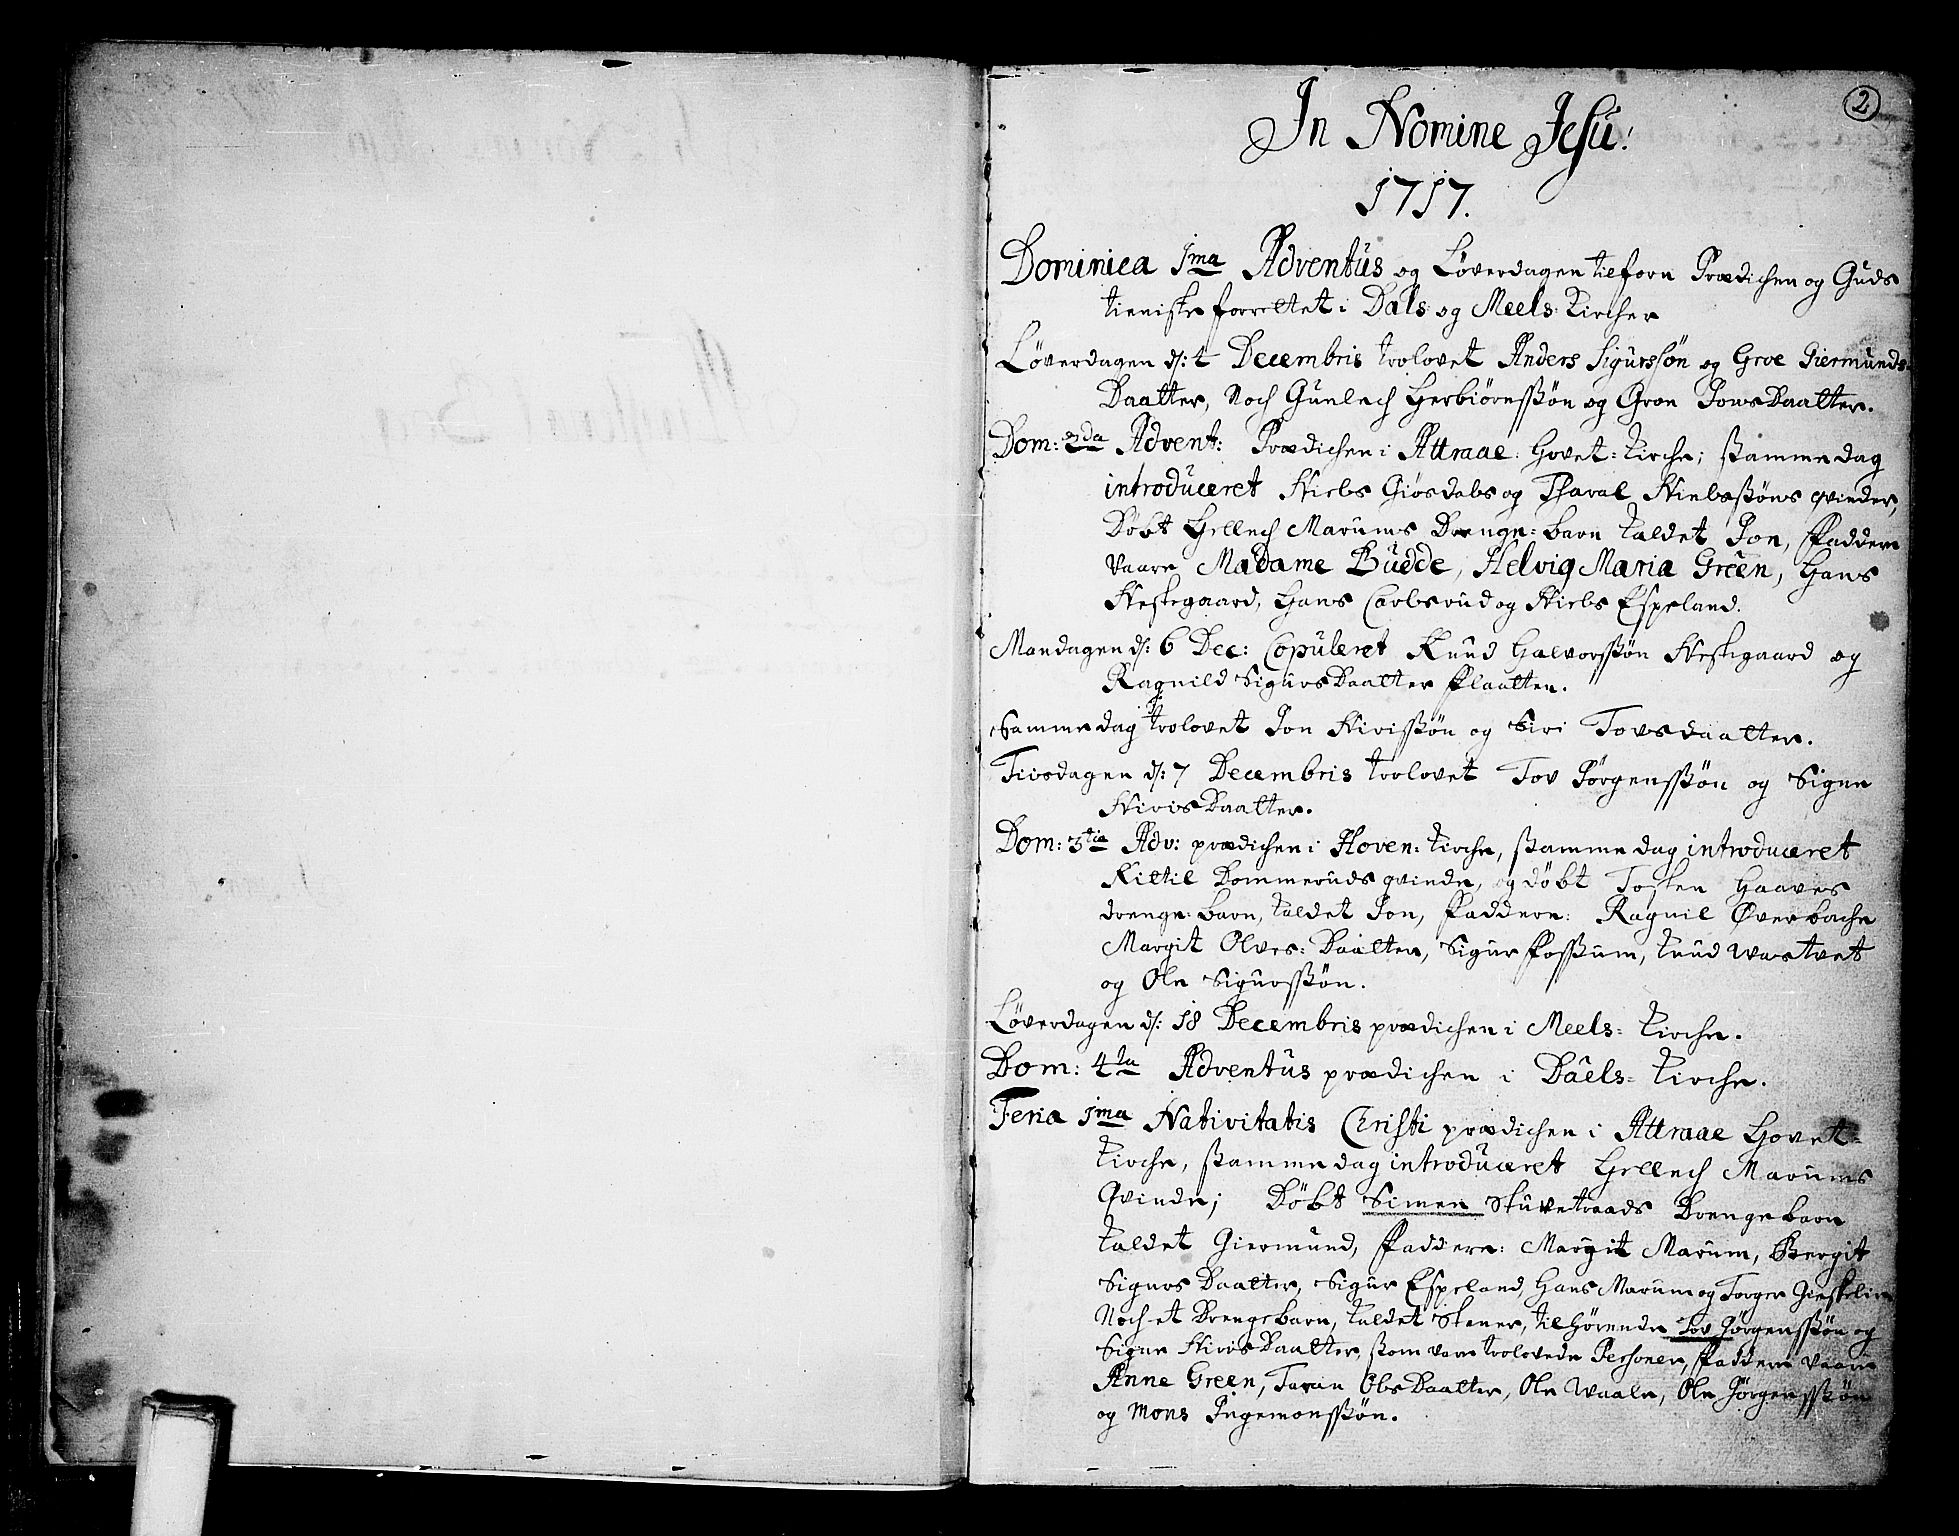 2
In Nomine Jesu!
1717.
Dominica 1ma Adventûs og Løverdagen tilforn Prædichen og Guds
tieniste forrettet i Dals og Meels Kircher
Løverdagen d: 4 Decembris trolovet Anders Sigurssøn og Groe Giermunds
Daatter, Noch Gunlech Herbiørnssøn og Gron JonsDaatter.
Dom: 2da Advent: Prædichen i Attraae Hovet=Kirche; samme dag
introduceret Niels Giøsdals og Tharal Nielssøns qvinder,
Døbt Hellech Marums Drenge=barn kaldet Jon, Faddere
vaare Madame Budde, Helvig Maria Green, Hans
Neskegaard, Hans Carlsrud og Niels Espeland.
Mandagen d: 6 Dec: Copuleret Knud Halvorssøn Neskegaard og
Ragnild SigursDaatter Flaatten.
Samme dag trolovet Jon Nirissøn og Siri Tovsdaatter.
Tiisdagen d: 7 Decembris trolovet Tov Jørgenssøn og Signe
NirisDaatter.
Dom: 3tia Adv: prædichen i Hoven: Kirche, samme dag introduceret
Kittil Bommeruds qvinde, og døbt Tosten Haaves
drenge barn, kaldet Jon, Faddere: Ragnil Øverbache
Margit Olves: Daatter, Sigur Fossum, Knud Wastvet
og Ole Sigurssøn.
Løverdagen d: 18 Decembris prædichen i Meels= Kirche.
Dom: 4ta Adventûs prædichen i Daels= Kirche.
Feria 1ma Nativitatis Christi prædichen i Attraae Hovet=
Kirche, samme dag introduceret Hellech Marums
Qvinde; Døbt Simen Skuvetraads Drengebarn
kaldet Giermund, Faddere: Margit Marum, Bergit
Sigurs Daatter, Sigur Espeland, Hans Marum og Torger
Noch et Drengebarn, kaldet Stener, tilhørende Tov Jørgenssøn og
Signe NirisDaatter, som vare trolovede Personer, Faddere vaare
Anne Green, Taran OlsDaatter, Ole Waale, Ole Jørgenssøn
og Mons Ingemonssøn.